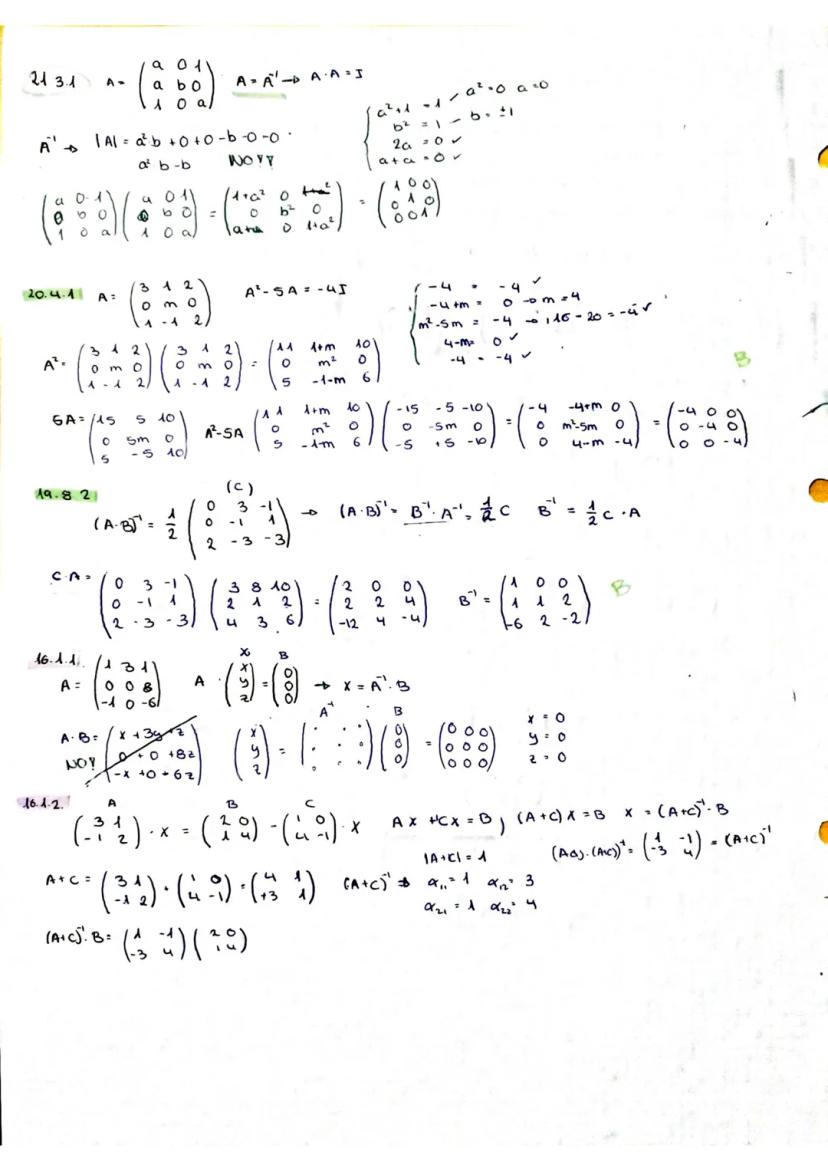 21 3.1 A = (a 0 1 / a b 0 / 1 0 a) A = A⁻¹ → A·A = I
{ a²+1 = 1 / a²=0 a=0
b² = 1 – b = ±1
2a = 0 ✓
a+a = 0 ✓
A⁻¹ → |A| = a²b + 0 + 0 - b - 0 - 0
a²b - b NO!!
(a 0 1 / 0 b 0 / 1 0 a) (a 0 1 / 0 b 0 / 1 0 a) = (1+a² 0 / 0 b² 0 / a+a 0 1+a²) = (1 0 0 / 0 1 0 / 0 0 1)
20.4.1 A = (3 1 2 / 0 m 0 / 1 -1 2) A² - 5A = -4I
{ -4 = -4 ✓
-4+m = 0 → m = 4
m²-5m = -4 → 16 - 20 = -4 ✓
4-m = 0 ✓
-4 = -4 ✓
A² = (3 1 2 / 0 m 0 / 1 -1 2) (3 1 2 / 0 m 0 / 1 -1 2) = (11 1+m 10 / 0 m² 0 / 5 -1-m 6) B
5A = (15 5 10 / 0 5m 0 / 5 -5 10) A²-5A (11 1+m 10 / 0 m² 0 / 5 -1-m 6) (-15 -5 -10 / 0 -5m 0 / -5 +5 -10) = (-4 -4+m 0 / 0 m²-5m 0 / 0 4-m -4) = (-4 0 0 / 0 -4 0 / 0 0 -4)
19.8 2 (C)
(A·B)⁻¹ = 1/2 (0 3 -1 / 0 -1 1 / 2 -3 -3) → (A·B)⁻¹ = B⁻¹·A⁻¹ = 1/2 C B⁻¹ = 1/2 C·A
C·A = (0 3 -1 / 0 -1 1 / 2 -3 -3) (3 8 10 / 2 1 2 / 4 3 6) = (2 0 0 / 2 2 4 / -12 4 -4) B⁻¹ = (1 0 0 / 1 1 2 / -6 2 -2) B
16.1.1.
A = (1 3 1 / 0 0 8 / -1 0 -6) A · X (x / y / z) = B (0 / 0 / 0) → X = A⁻¹·B
A·B = (x + 3y + z / 0 + 0 + 8z / -x + 0 + 6z) NO! (x / y / z) = A⁻¹ (. . . / . . . / . . .) B (0 / 0 / 0) = (0 0 0 / 0 0 0 / 0 0 0) x = 0
y = 0
z = 0
16.1.2. A B C
(3 1 / -1 2) · X = (2 0 / 1 4) - (1 0 / 4 -1) · X AX + CX = B, (A+C) X = B X = (A+C)⁻¹·B
A+C = (3 1 / -1 2) + (1 0 / 4 -1) = (4 1 / +3 1) (A+C)⁻¹ ⇒ |A+C| = 1
α₁₁ = 1 α₁₂ = 3
α₂₁ = 1 α₂₂ = 4
(Adj.(A+C))ᵗ = (1 -1 / -3 4) = (A+C)⁻¹
(A+C)⁻¹·B = (1 -1 / -3 4) (2 0 / 1 4)